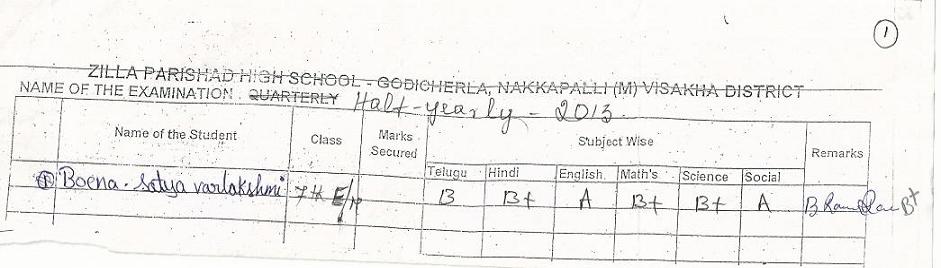 1
ZILLA PARISHAD HIGH SCHOOL - GODICHERLA, NAKKAPALLI (M) VISAKHA DISTRICT
NAME OF THE EXAMINATION : QUARTERLY Half-yearly - 2013
Name of the Student Class Marks Secured Subject Wise Remarks
Telugu Hindi English Math's Science Social
Boena. Satya varlakshmi 7th E/M B B+ A B+ B+ A B+